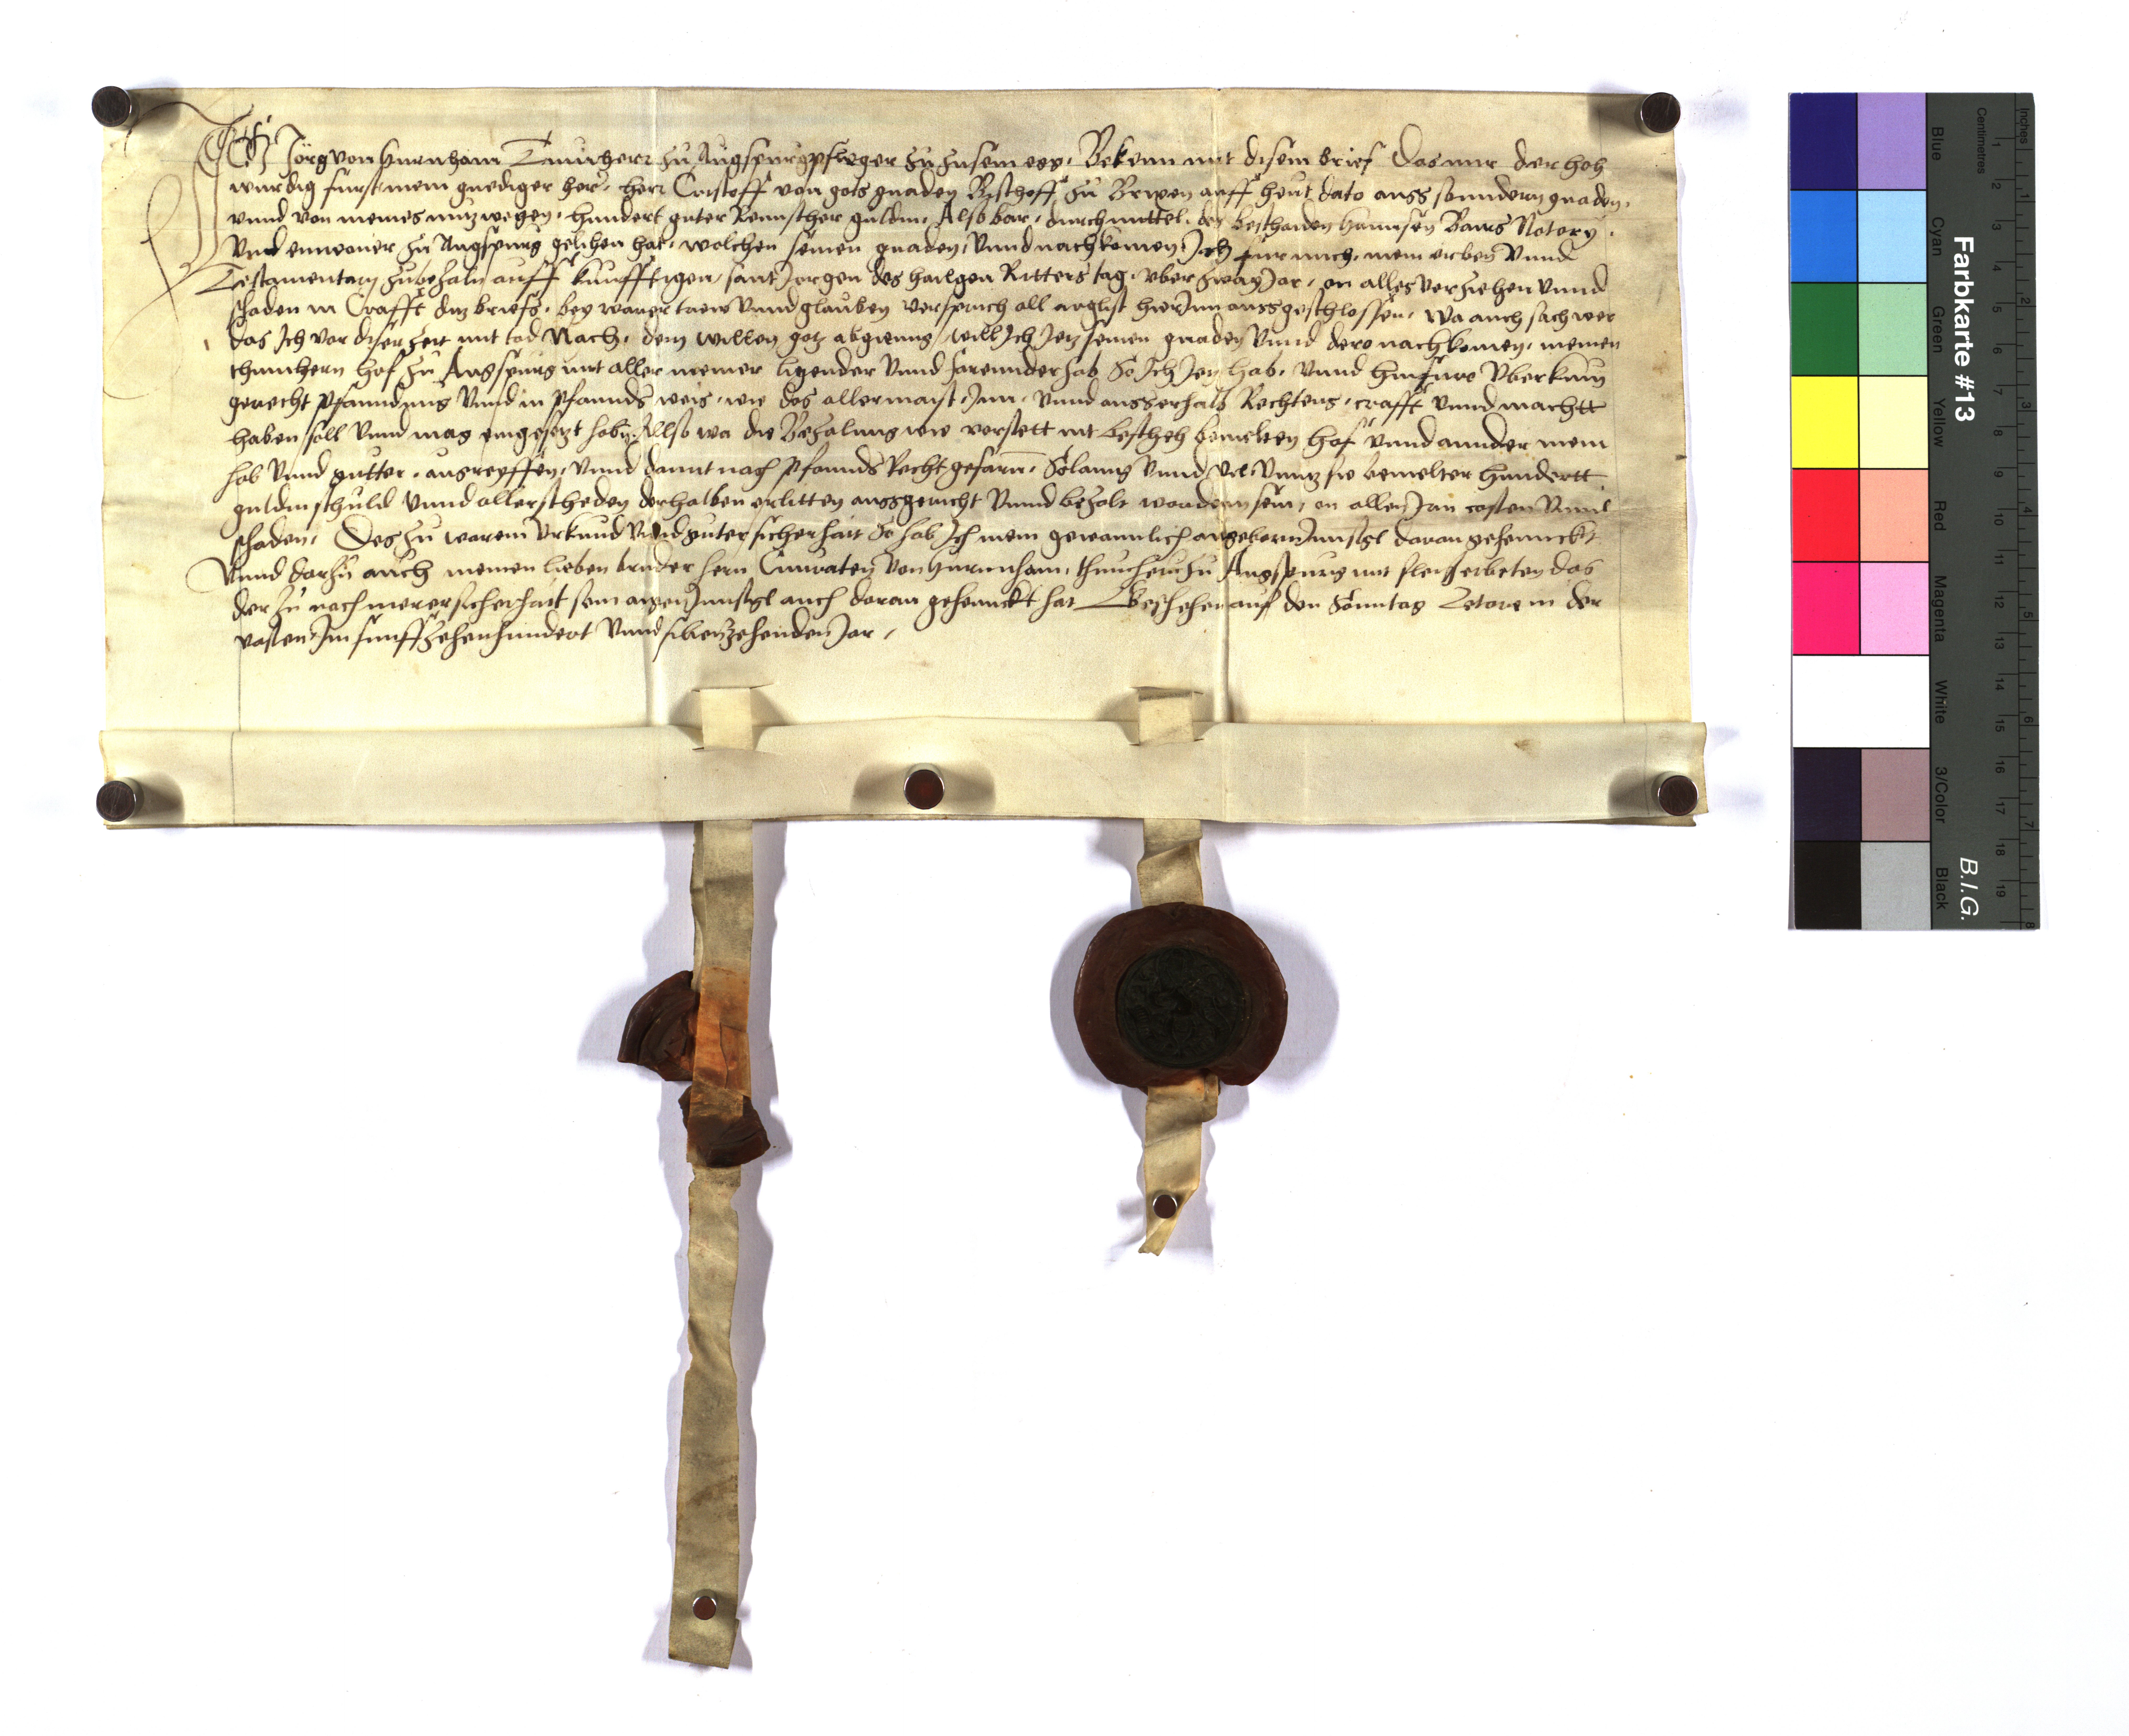 Ich Jörg von Hurnhaim Tumherr zu Augspurg pfleger zu Zusemegg. Bekenn mit disem brief Das mir der hoh
wurdig furst mein gnediger her. herr Cristoff von gots gnaden Bischoff zu Brixen auff heut dato auss sonndern gnaden.
vnnd von meines nutz wegen. hundert guter Reinischer guldin. Also bar. durch mittel des beschaiden Hannsen Baurs Notary.
Vnnd einwoner zu Augspurg gelihen hat. welchen seinen gnaden. Vnnd nachkomen. Ich fur mich. mein erben Vnnd
Testamentary zubezaln auff kunfftigen sant Jorgen des hailgen Ritters tag. vber zway Jar. on alles verziehen Vnnd
schaden in Crafft ditz briefs. bey warer trew Vnnd glauben versprich all arglist hierInn aussgeschlossen. Wa auch sach wer
das Ich vor diser zeit mit tod Nach. dem willen gotz abgienng, will Ich Jetz seinen gnaden Vnnd dero nachkomen. meinen
thumhern hof zu Augspurg mit aller meiner ligender Vnnd farennder hab So Ich Jetz hab. Vnnd hinfuro Vberkum
gerecht pfanndung Vnnd in pfannds weis. wie das allermaist. Inn. Vnnd ausserhalb Rechtens. crafft Vnnd machtt
haben soll Vnnd mag eingesetzt haben. Allso wa die Bezalung wie vorstett nit beschech bemelten hof Vnnd annder mein
hab Vnnd gutter. angreyffen. Vnnd damit nach pfannds Recht gefarn. Solanng Vnnd vil. Vnntz sie bemelter hundertt
guldin schuld Vnnd aller scheden derhalben erlitten aussgericht Vnnd bezalt worden sein, on allen Irn costen Vnnd
schaden. Des zu warem Vrkund Vnnd guter sicherhait So hab Ich mein gewonnlich angeborn Innsigl daran gehennckt
Vnnd darzu auch meinen lieben bruder hern Cunraten von Hurnhaim. thumhern zu Augspurg mit fleis erbeten das
der zu noch merer sicherhait sein aigen Innsigl auch daran gehennckt hat Geschehen auf den Sonntag Letare in der
vasten Im funffzehenhundert Vnnd sibenzehenden Jar.
Farbkarte #13
B.I.G.
Centimetres
Inches
Blue
Cyan
Green
Yellow
Red
Magenta
White
3/Color
Black
1 2 3 4 5 6 7 8 9 10 11 12 13 14 15 16 17 18 19
1 2 3 4 5 6 7 8